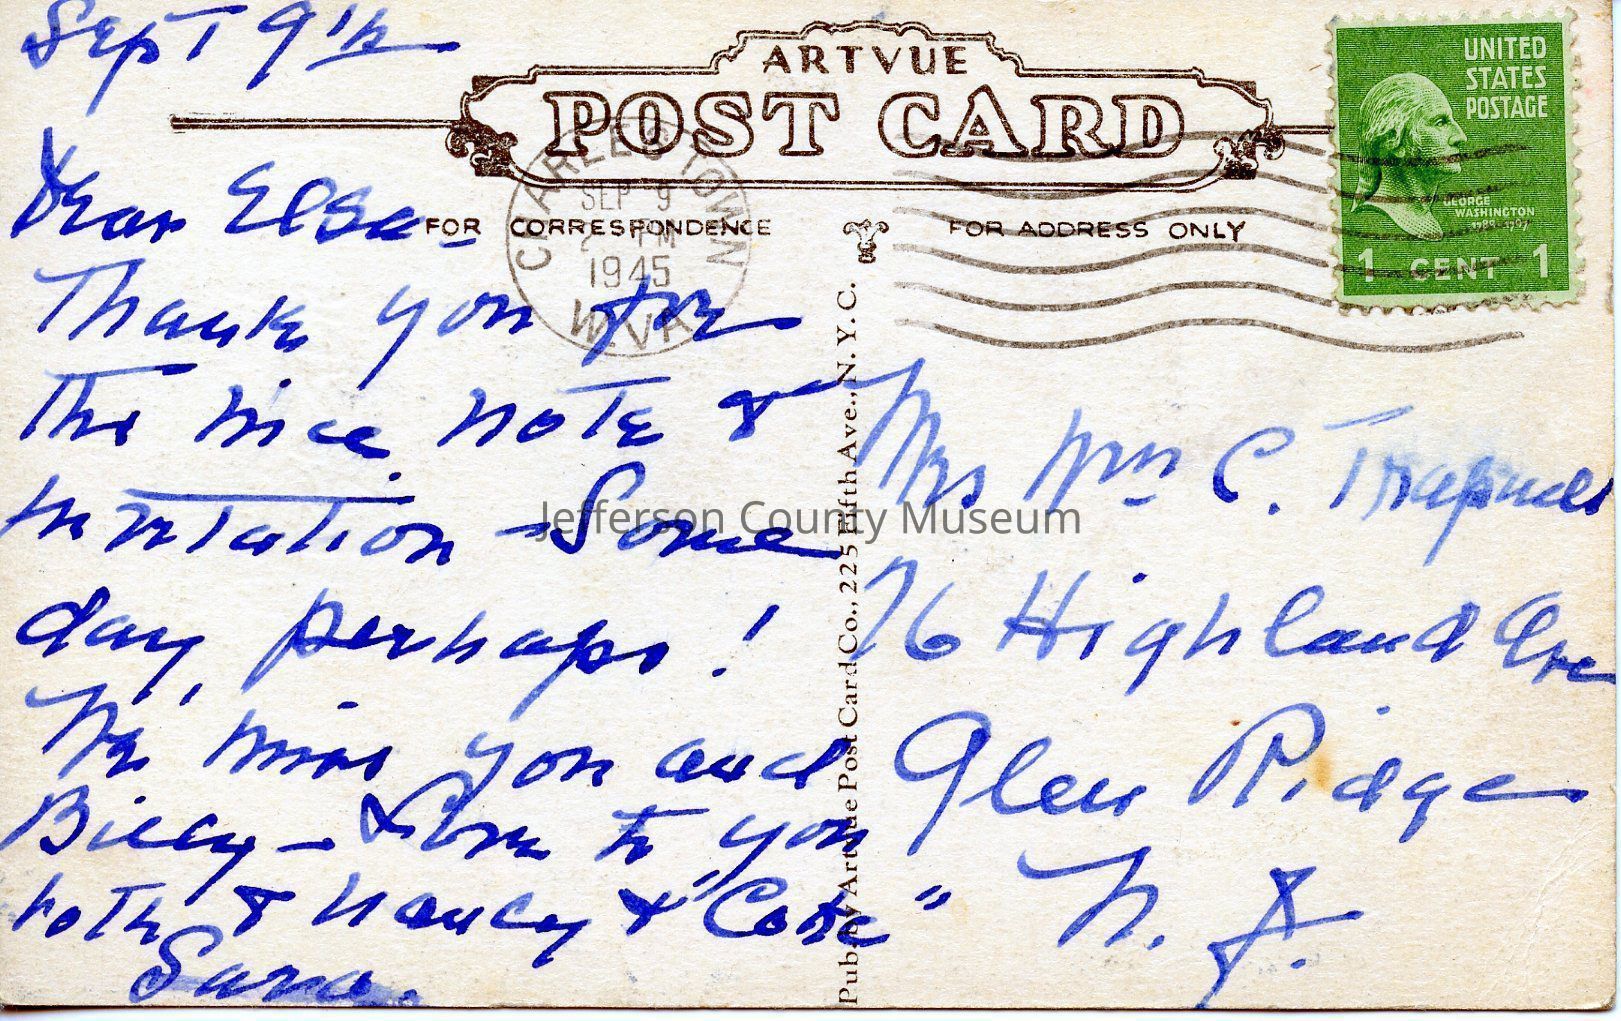 Sept 9th
ARTVUE
POST CARD
UNITED
STATES
POSTAGE
GEORGE
WASHINGTON
1 CENT 1
CHARLES TOWN
SEP 9
PM
1945
W.VA
FOR CORRESPONDENCE
FOR ADDRESS ONLY
Dear Elsa -
Thank you for
the nice note &
invitation - Some
day, perhaps!
We miss you and
Billy - & love to you
both & Nancy & "Coke"
Sara.
Mrs Wm C. Trapnell
76 Highland Ave
Glen Ridge
N. J.
Pub. by Artvue Post Card Co., 225 Fifth Ave., N. Y. C.
Jefferson County Museum